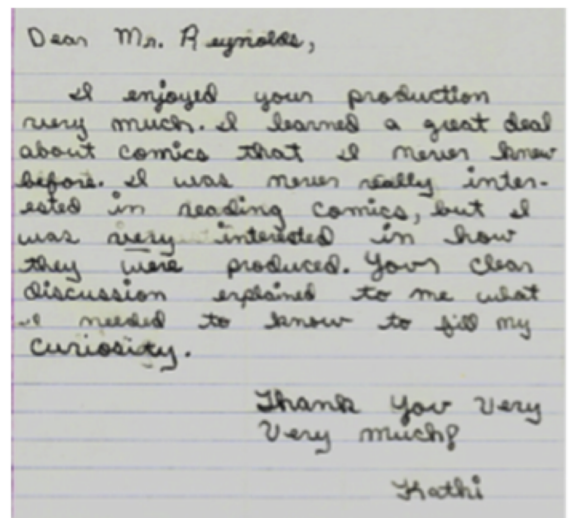 Dear Mr. Reynolds,
I enjoyed your production
very much. I learned a great deal
about comics that I never knew
before. I was never really inter-
ested in reading comics, but I
was very interested in how
they were produced. Your clear
discussion explained to me what
I needed to know to fill my
curiosity.
Thank You Very
Very much!
Kathi